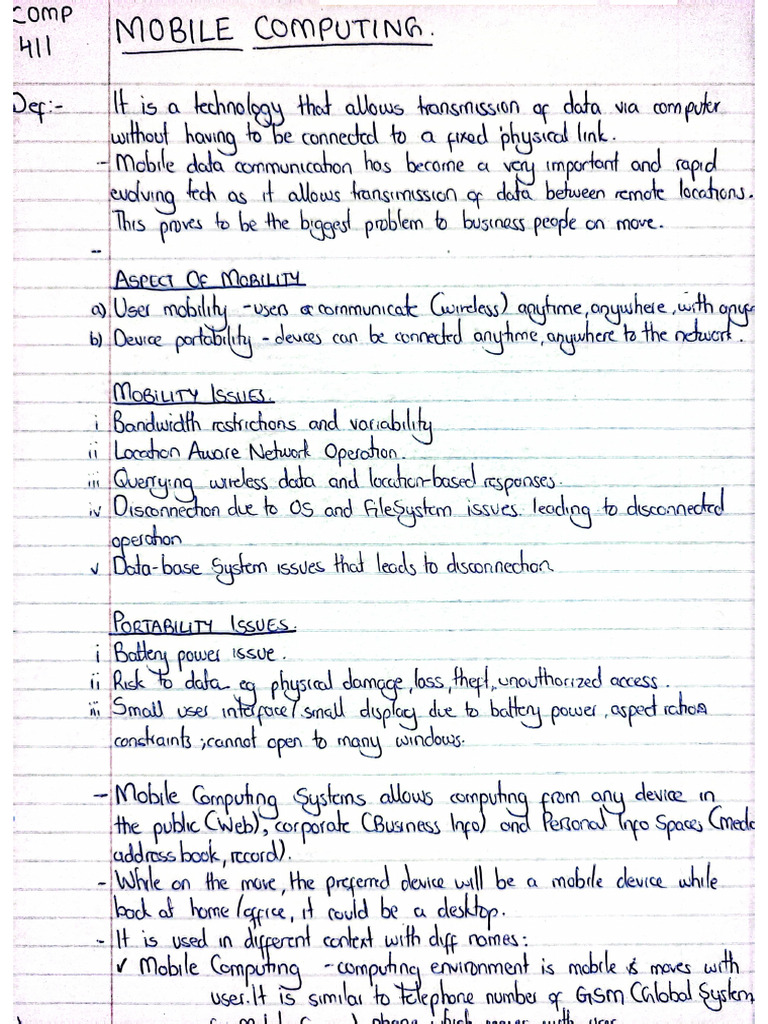 COMP
411
MOBILE COMPUTING.
Def:- It is a technology that allows transmission of data via computer
without having to be connected to a fixed physical link.
- Mobile data communication has become a very important and rapid
evolving tech as it allows transimission of data between remote locations.
This proves to be the biggest problem to business people on move.
-
ASPECT OF MOBILITY
a) User mobility - users communicate (wireless) anytime, anywhere, with
b) Device portability - devices can be connected anytime, anywhere to the network.
MOBILITY ISSUES.
i Bandwidth restrictions and variability
ii Location Aware Network Operation.
iii Querying wireless data and location-based responses.
iv Disconnection due to OS and FileSystem issues leading to disconnected
operation
v Data-base System issues that leads to disconnection
PORTABILITY ISSUES.
i Battery power issue.
ii Risk to data eg physical damage, loss, theft, unauthorized access.
iii Small user interface/small display due to battery power, aspect
constraints; cannot open to many windows.
- Mobile Computing Systems allows computing from any device in
the public (Web), corporate (Business Info) and Personal Info Spaces
address book, record).
- While on the move, the preferred device will be a mobile device while
back at home/office, it could be a desktop.
- It is used in different context with diff names:
✓ Mobile Computing - computing environment is mobile & moves with
user. It is similar to telephone number of GSM (Global System
phone which moves with user